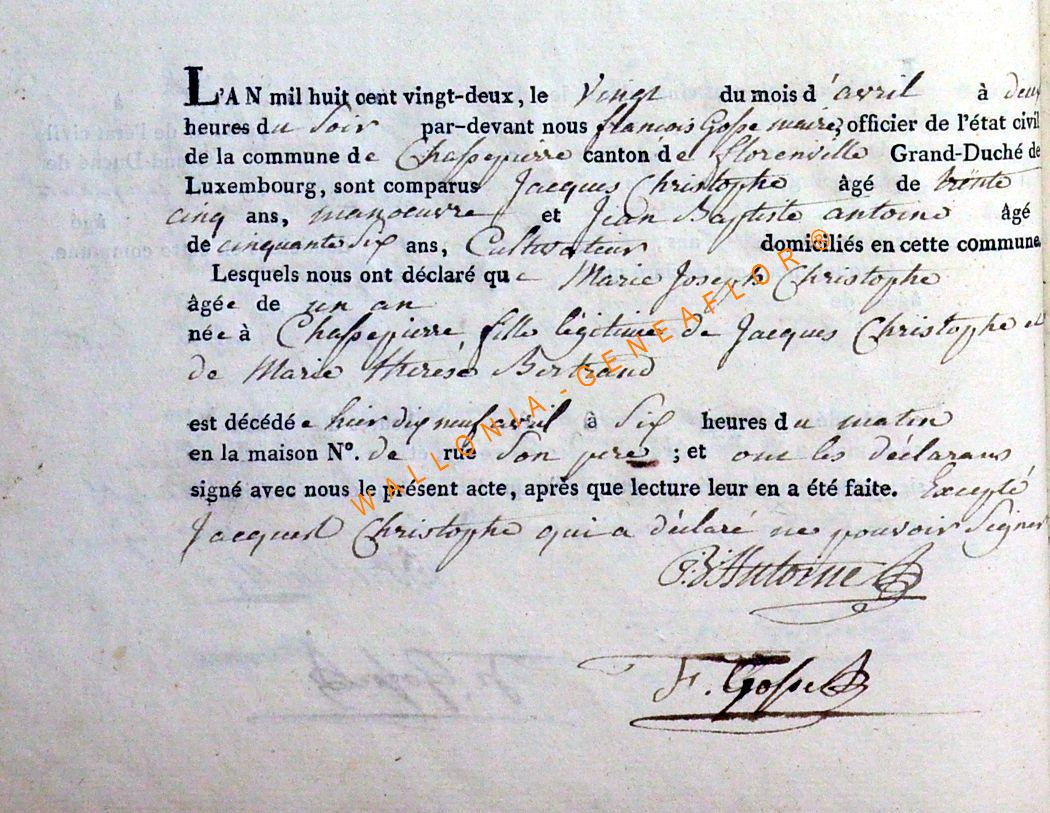 L'AN mil huit cent vingt-deux, le Vingt du mois d'avril à deux
heures du Soir par-devant nous francois Gosse maire, officier de l'état civil
de la commune de Chassepierre canton de Florenville Grand-Duché de
Luxembourg, sont comparus Jacques Christophe âgé de trente
cinq ans, manoeuvre et Jean Baptiste antoine âgé
de cinquante Six ans, Cultivateur domiciliés en cette commune.
Lesquels nous ont déclaré que Marie Joseph Christophe
âgée de un an
née à Chassepierre, fille légitime de Jacques Christophe et
de Marie Therese Bertrand
est décédée hier dix neuf avril à Six heures du matin
en la maison N°. de rue Son pere ; et ont les déclarans
signé avec nous le présent acte, après que lecture leur en a été faite. Excepté
Jacques Christophe qui a déclaré ne pouvoir Signer
J.B. Antoine
F. Gosse
WALLONIA-GENEAFLOR ®